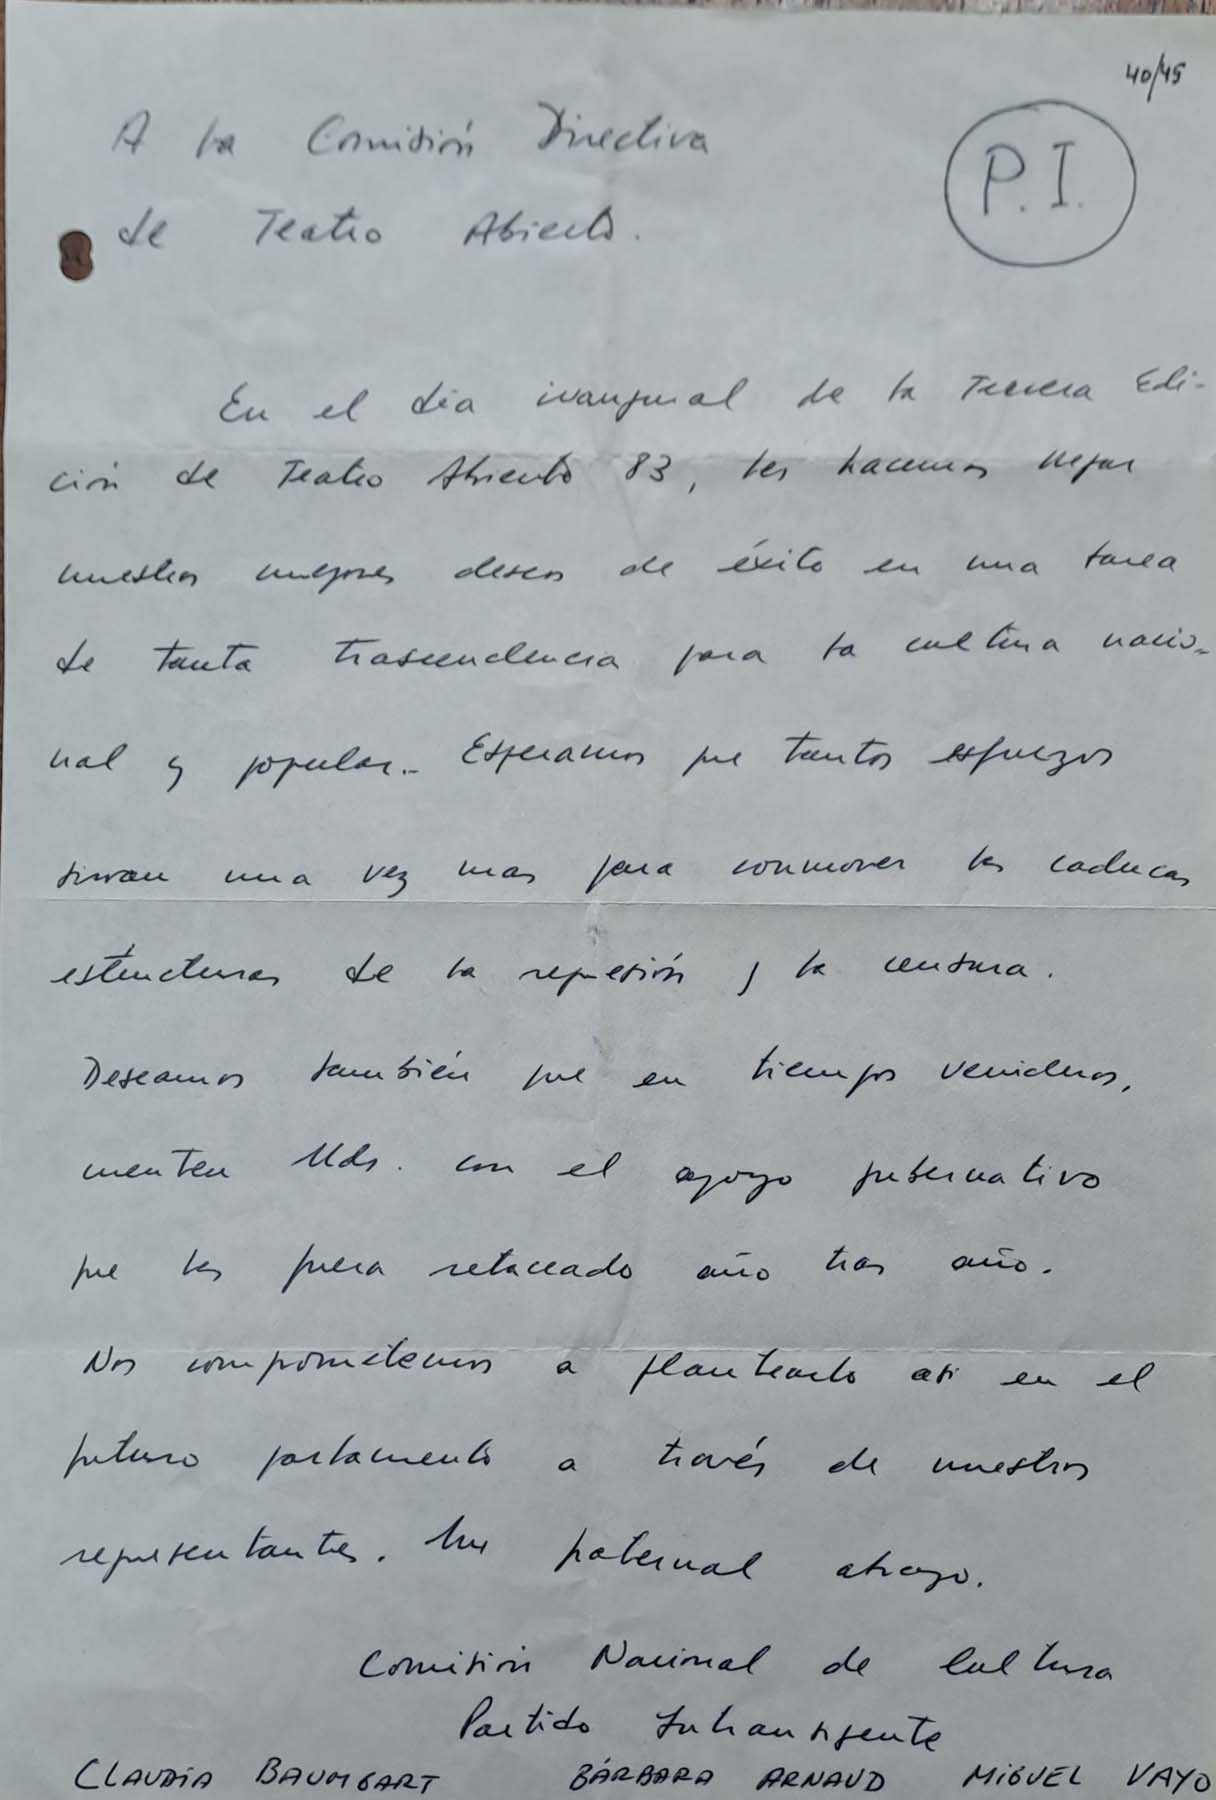 40/45
A la Comisión Directiva
P.I.
de Teatro Abierto.
En el día inaugural de la Tercera Edi-
ción de Teatro Abierto 83, les hacemos llegar
nuestros mejores deseos de éxito en una tarea
de tanta trascendencia para la cultura nacio-
nal y popular.. Esperamos que tantos esfuerzos
sirvan una vez mas para conmover las caducas
estructuras de la represión y la censura.
Deseamos también que en tiempos venideros,
cuenten Uds. con el apoyo gubernativo
que les fuera retaceado año tras año.
Nos comprometemos a plantearlo asi en el
futuro parlamento a través de nuestros
representantes. Un fraternal abrazo.
Comisión Nacional de Cultura
Partido Intransigente
CLAUDIA BAUMGART BÁRBARA ARNAUD MIGUEL VAYO